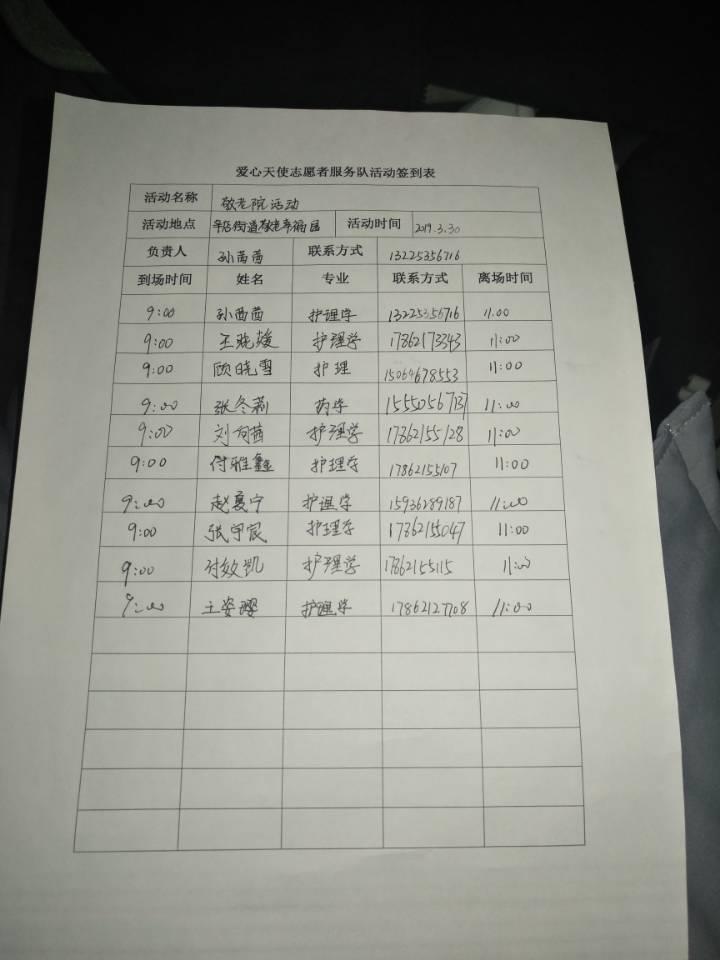 爱心天使志愿者服务队活动签到表
活动名称 敬老院活动
活动地点 街道敬老幸福园 活动时间 2019.3.30
负责人 孙茜茜 联系方式 13225356716
到场时间 姓名 专业 联系方式 离场时间
9:00 孙茜茜 护理学 13225356716 11:00
9:00 王晓媛 护理学 17862173343 11:00
9:00 顾晓雪 护理 15064678553 11:00
9:00 张冬莉 药学 15550567137 11:00
9:00 刘茜 护理学 17862155128 11:00
9:00 付雅鑫 护理学 17862155107 11:00
9:00 赵夏宁 护理学 15936289187 11:00
9:00 张宇宸 护理学 17862155047 11:00
9:00 凯 护理学 17862155115 11:00
9:00 王姿璎 护理学 17862127708 11:00